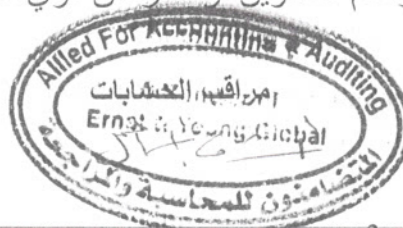 Allied For Accounting & Auditing
مراقبي الحسابات
Ernst & Young Global
المتضامنون للمحاسبة والمراجعة